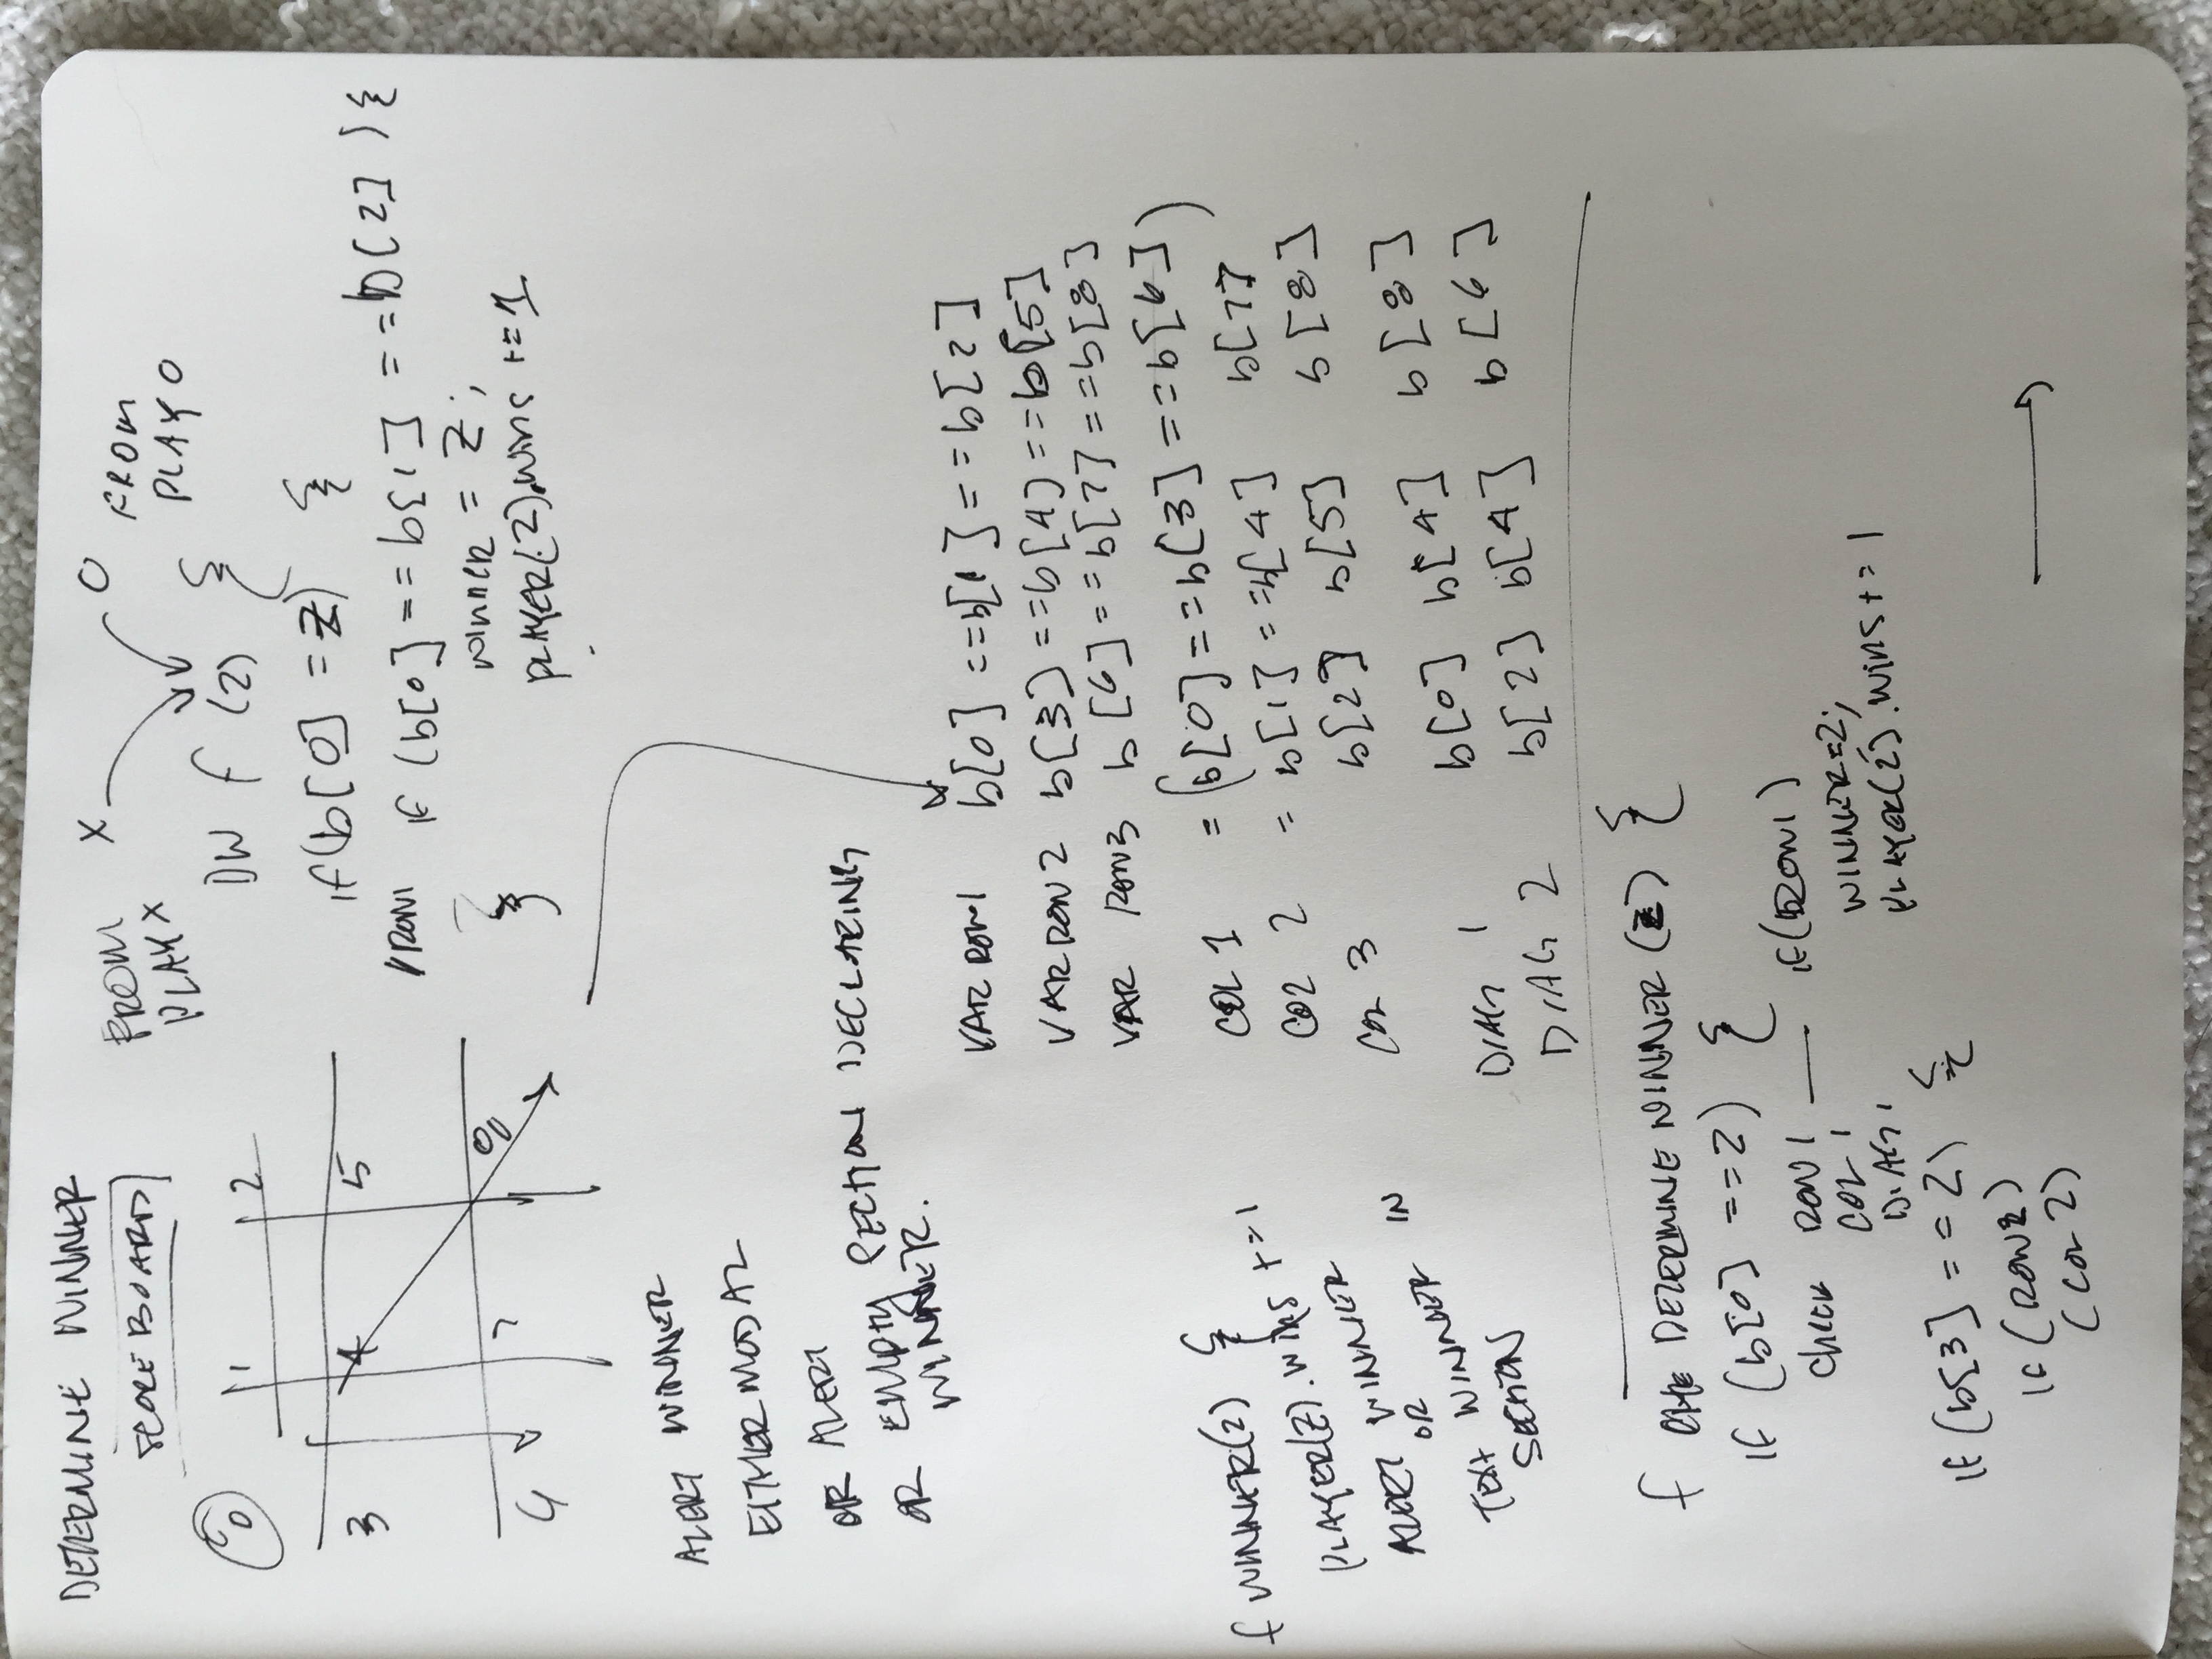 DETERMINE WINNER
SCOREBOARD
FROM PLAY X
X
O
FROM PLAY O
0 1 2
3 4 5
6 7 8
DW f (Z) {
if (b[0] = Z) {
// ROW1 if (b[0] == b[1] == b[2]) {
WINNER = Z;
PLAYER(Z).WINS += 1
}
ALERT WINNER
EITHER MODAL
OR ALERT
OR EMPTY SECTION DECLARING
WINNER.
VAR ROW1 b[0] == b[1] == b[2]
VAR ROW2 b[3] == b[4] == b[5]
VAR ROW3 b[6] == b[7] == b[8]
COL 1 = (b[0] == b[3] == b[6])
COL 2 = b[1] == b[4] b[7]
COL 3 b[2] b[5] b[8]
DIAG 1 b[0] b[4] b[8]
DIAG 2 b[2] b[4] b[6]
f WINNER(Z) {
PLAYER(Z).WINS += 1
ALERT WINNER
OR
TEXT WINNER IN
SECTION
f DETERMINE WINNER (Z) {
if (b[0] == Z) {
CHECK ROW 1 — if (ROW1)
COL 1
DIAG 1
WINNER = Z;
PLAYER(Z).WINS += 1
if (b[3] == Z) {
if (ROW2)
(COL 2)